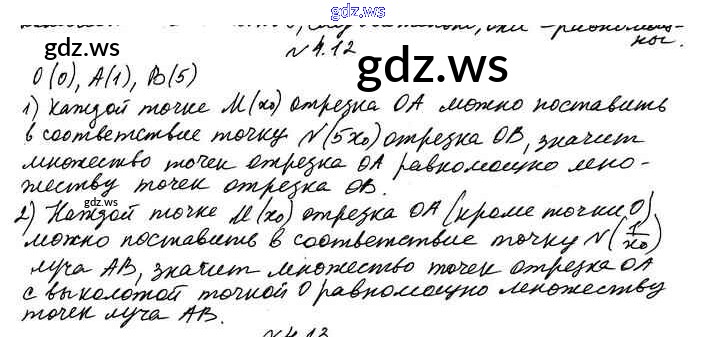 gdz.ws
N 4.12
gdz.ws
gdz.ws
O(0), A(1), B(5)
1) Каждой точке M(x₀) отрезка OA можно поставить
в соответствие точку N(5x₀) отрезка OB, значит
множество точек отрезка OA равномощно мно-
жеству точек отрезка OB.
gdz.ws
2) Каждой точке M(x₀) отрезка OA (кроме точки O)
можно поставить в соответствие точку N(1/x₀)
луча AB, значит множество точек отрезка OA
с выколотой точкой O равномощно множеству
точек луча AB.